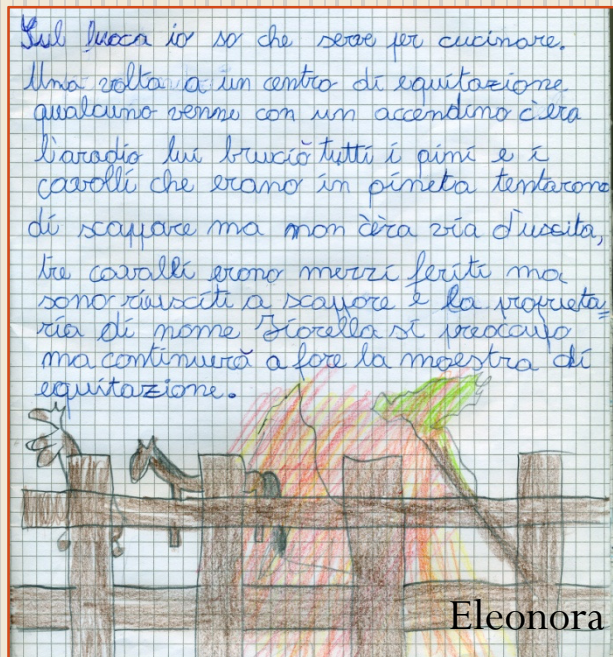 Sul fuoca io so che serve per cucinare.
Una volta a un centro di equitazione
qualcuno venne con un accendino c'era
l'aradio lui bruciò tutti i pini e i
cavolli che erano in pineta tentarono
di scappare ma non c'èra via d'uscita,
tre cavalli erono mezzi feriti ma
sono riusciti a scappore e la proprieta=
ria di nome Fiorella si preoccupo
ma continuerà a fore la maestra di
equitazione.
Eleonora